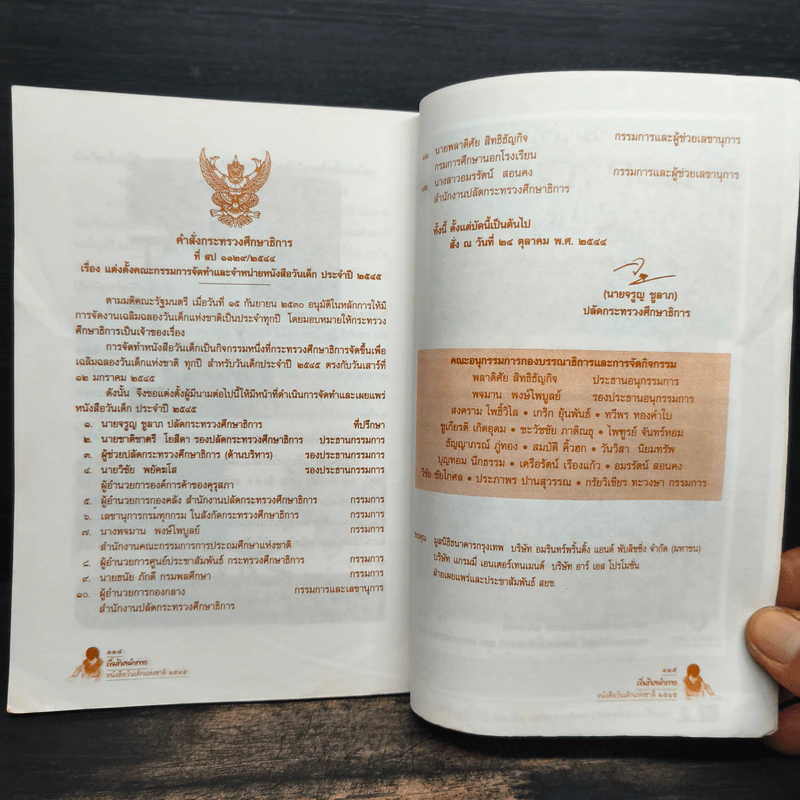 คำสั่งกระทรวงศึกษาธิการ
ที่ สป ๑๑๒๙/๒๕๔๔
เรื่อง แต่งตั้งคณะกรรมการจัดทำและจำหน่ายหนังสือวันเด็ก ประจำปี ๒๕๔๕
ตามมติคณะรัฐมนตรี เมื่อวันที่ ๑๕ กันยายน ๒๕๓๐ อนุมัติในหลักการให้มี
การจัดงานเฉลิมฉลองวันเด็กแห่งชาติเป็นประจำทุกปี โดยมอบหมายให้กระทรวง
ศึกษาธิการเป็นเจ้าของเรื่อง
การจัดทำหนังสือวันเด็กเป็นกิจกรรมหนึ่งที่กระทรวงศึกษาธิการจัดขึ้นเพื่อ
เฉลิมฉลองวันเด็กแห่งชาติ ทุกปี สำหรับวันเด็กประจำปี ๒๕๔๕ ตรงกับวันเสาร์ที่
๑๒ มกราคม ๒๕๔๕
ดังนั้น จึงขอแต่งตั้งผู้มีนามต่อไปนี้ให้มีหน้าที่ดำเนินการจัดทำและเผยแพร่
หนังสือวันเด็ก ประจำปี ๒๕๔๕
๑. นายจรูญ ชูลาภ ปลัดกระทรวงศึกษาธิการ ที่ปรึกษา
๒. นายชาติชาตรี โยสีดา รองปลัดกระทรวงศึกษาธิการ ประธานกรรมการ
๓. ผู้ช่วยปลัดกระทรวงศึกษาธิการ (ด้านบริหาร) รองประธานกรรมการ
๔. นายวิชัย พยัคฆโส รองประธานกรรมการ
ผู้อำนวยการองค์การค้าของคุรุสภา
๕. ผู้อำนวยการกองคลัง สำนักงานปลัดกระทรวงศึกษาธิการ กรรมการ
๖. เลขานุการกรมทุกกรม ในสังกัดกระทรวงศึกษาธิการ กรรมการ
๗. นางพจมาน พงษ์ไพบูลย์ กรรมการ
สำนักงานคณะกรรมการการประถมศึกษาแห่งชาติ
๘. ผู้อำนวยการศูนย์ประชาสัมพันธ์ กระทรวงศึกษาธิการ กรรมการ
๙. นายธนัย ภักดี กรมพลศึกษา กรรมการ
๑๐. ผู้อำนวยการกองกลาง กรรมการและเลขานุการ
สำนักงานปลัดกระทรวงศึกษาธิการ
๑๑๔
หนังสือวันเด็กแห่งชาติ ๒๕๔๕
นายพลาดิศัย สิทธิธัญกิจ กรรมการและผู้ช่วยเลขานุการ
กรมการศึกษานอกโรงเรียน
นางสาวอมรรัตน์ สอนคง กรรมการและผู้ช่วยเลขานุการ
สำนักงานปลัดกระทรวงศึกษาธิการ
ทั้งนี้ ตั้งแต่บัดนี้เป็นต้นไป
สั่ง ณ วันที่ ๒๔ ตุลาคม พ.ศ. ๒๕๔๔
(นายจรูญ ชูลาภ)
ปลัดกระทรวงศึกษาธิการ
คณะอนุกรรมการกองบรรณาธิการและการจัดกิจกรรม
พลาดิศัย สิทธิธัญกิจ ประธานอนุกรรมการ
พจมาน พงษ์ไพบูลย์ รองประธานอนุกรรมการ
สงคราม โพธิ์วิไล • เกริก ยุ้นพันธ์ • ทวีพร ทองคำใบ
ชูเกียรติ เกิดอุดม • ชะวัชชัย ภาติณธุ • ไพฑูรย์ จันทร์หอม
ธัญญาภรณ์ ภู่ทอง • สมบัติ คิ้วฮก • วันวิสา นิยมทรัพ
บุญทอม นึกธรรม • เครือรัตน์ เรืองแก้ว • อมรรัตน์ สอนคง
วิชัย ชัยโกศล • ประภาพร ปานสุวรรณ • กรัยวิเชียร ทะวงษา กรรมการ
ขอบคุณ มูลนิธิธนาคารกรุงเทพ บริษัท อมรินทร์พริ้นติ้ง แอนด์ พับลิชชิ่ง จำกัด (มหาชน)
บริษัท แกรมมี่ เอนเตอร์เทนเมนต์ บริษัท อาร์ เอส โปรโมชั่น
ฝ่ายเผยแพร่และประชาสัมพันธ์ สยช.
๑๑๕
หนังสือวันเด็กแห่งชาติ ๒๕๔๕